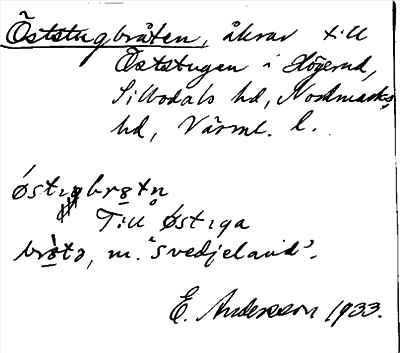 Öststugbråten, åkrar till
Öststugen i Högerud,
Silbodals hd, Nordmarks
hd, Värml. l.
östigbrøtn̥
Till östiga
brøtə, m. "svedjeland".
E. Andersson 1933.